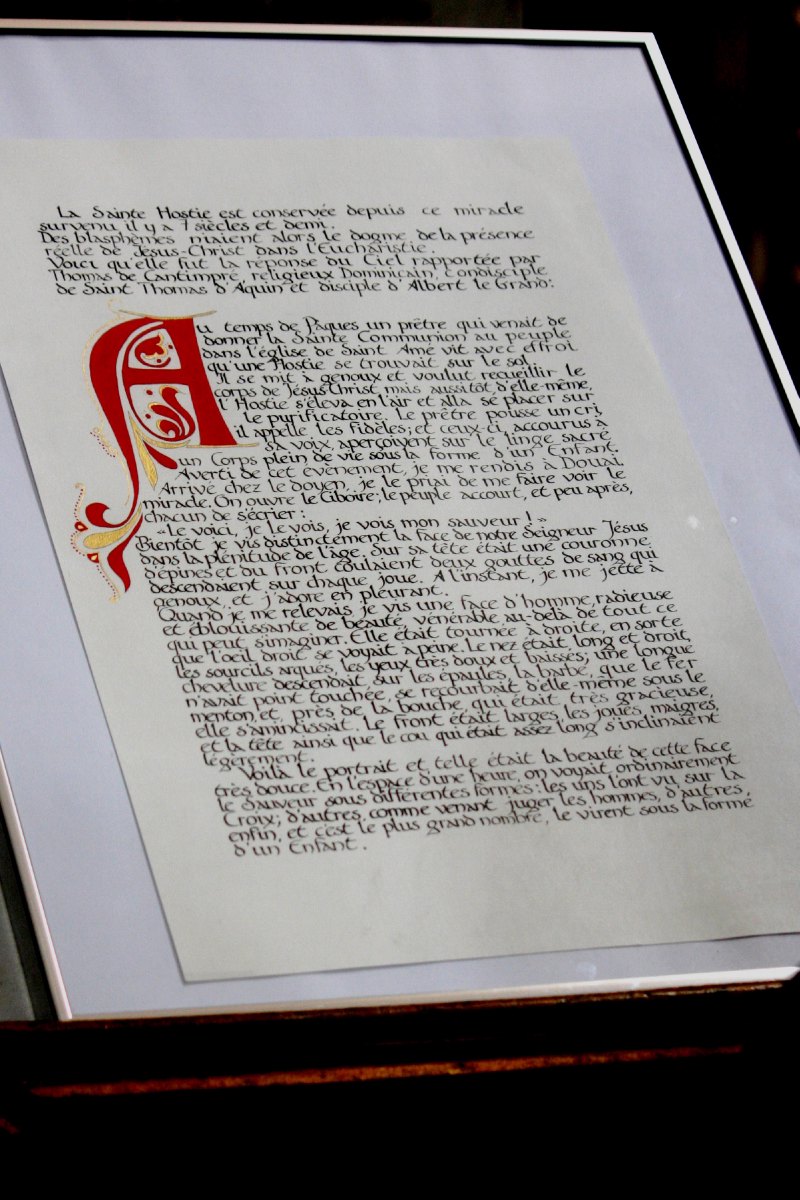 La Sainte Hostie est conservée depuis ce miracle
survenu il y a 7 siècles et demi.
Des blasphèmes niaient alors le dogme de la présence
réelle de Jésus-Christ dans l'Eucharistie.
Voici qu'elle fut la réponse du Ciel rapportée par
Thomas de Cantimpré, religieux Dominicain, condisciple
de Saint Thomas d'Aquin et disciple d'Albert le Grand:
Au temps de Pâques un prêtre qui venait de
donner la Sainte Communion au peuple
dans l'église de Saint Amé vit avec effroi
qu'une Hostie se trouvait sur le sol.
Il se mit à genoux et voulut recueillir le
corps de Jésus Christ mais aussitôt d'elle-même,
l'Hostie s'éleva en l'air et alla se placer sur
le purificatoire. Le prêtre pousse un cri,
il appelle les fidèles; et ceux-ci, accourus à
sa voix, aperçoivent sur le linge sacré
un Corps plein de vie sous la forme d'un Enfant.
Averti de cet évènement, je me rendis à Douai.
Arrivé chez le doyen, je le priai de me faire voir le
miracle. On ouvre le Ciboire; le peuple accourt, et peu après,
chacun de s'écrier:
«Le voici, je le vois, je vois mon sauveur!»
Bientôt je vis distinctement la face de notre Seigneur Jésus
dans la plénitude de l'âge. Sur sa tête était une couronne
d'épines et du front coulaient deux gouttes de sang qui
descendaient sur chaque joue. A l'instant, je me jette à
genoux, et j'adore en pleurant.
Quand je me relevais je vis une face d'homme, radieuse
et éblouissante de beauté, vénérable au-delà de tout ce
qui peut s'imaginer. Elle était tournée à droite, en sorte
que l'oeil droit se voyait à peine. Le nez était long et droit,
les sourcils arqués, les yeux très doux et baissés; une longue
chevelure descendait sur les épaules, la barbe, que le fer
n'avait point touchée, se recourbait d'elle-même sous le
menton, et, près de la bouche, qui était très gracieuse,
elle s'amincissait. Le front était large, les joues maigres,
et la tête ainsi que le cou qui était assez long s'inclinaient
légèrement.
Voilà le portrait et telle était la beauté de cette face
très douce. En l'espace d'une heure, on voyait ordinairement
le Sauveur sous différentes formes: les uns l'ont vu sur la
Croix; d'autres, comme venant juger les hommes, d'autres,
enfin, et c'est le plus grand nombre, le virent sous la forme
d'un Enfant.